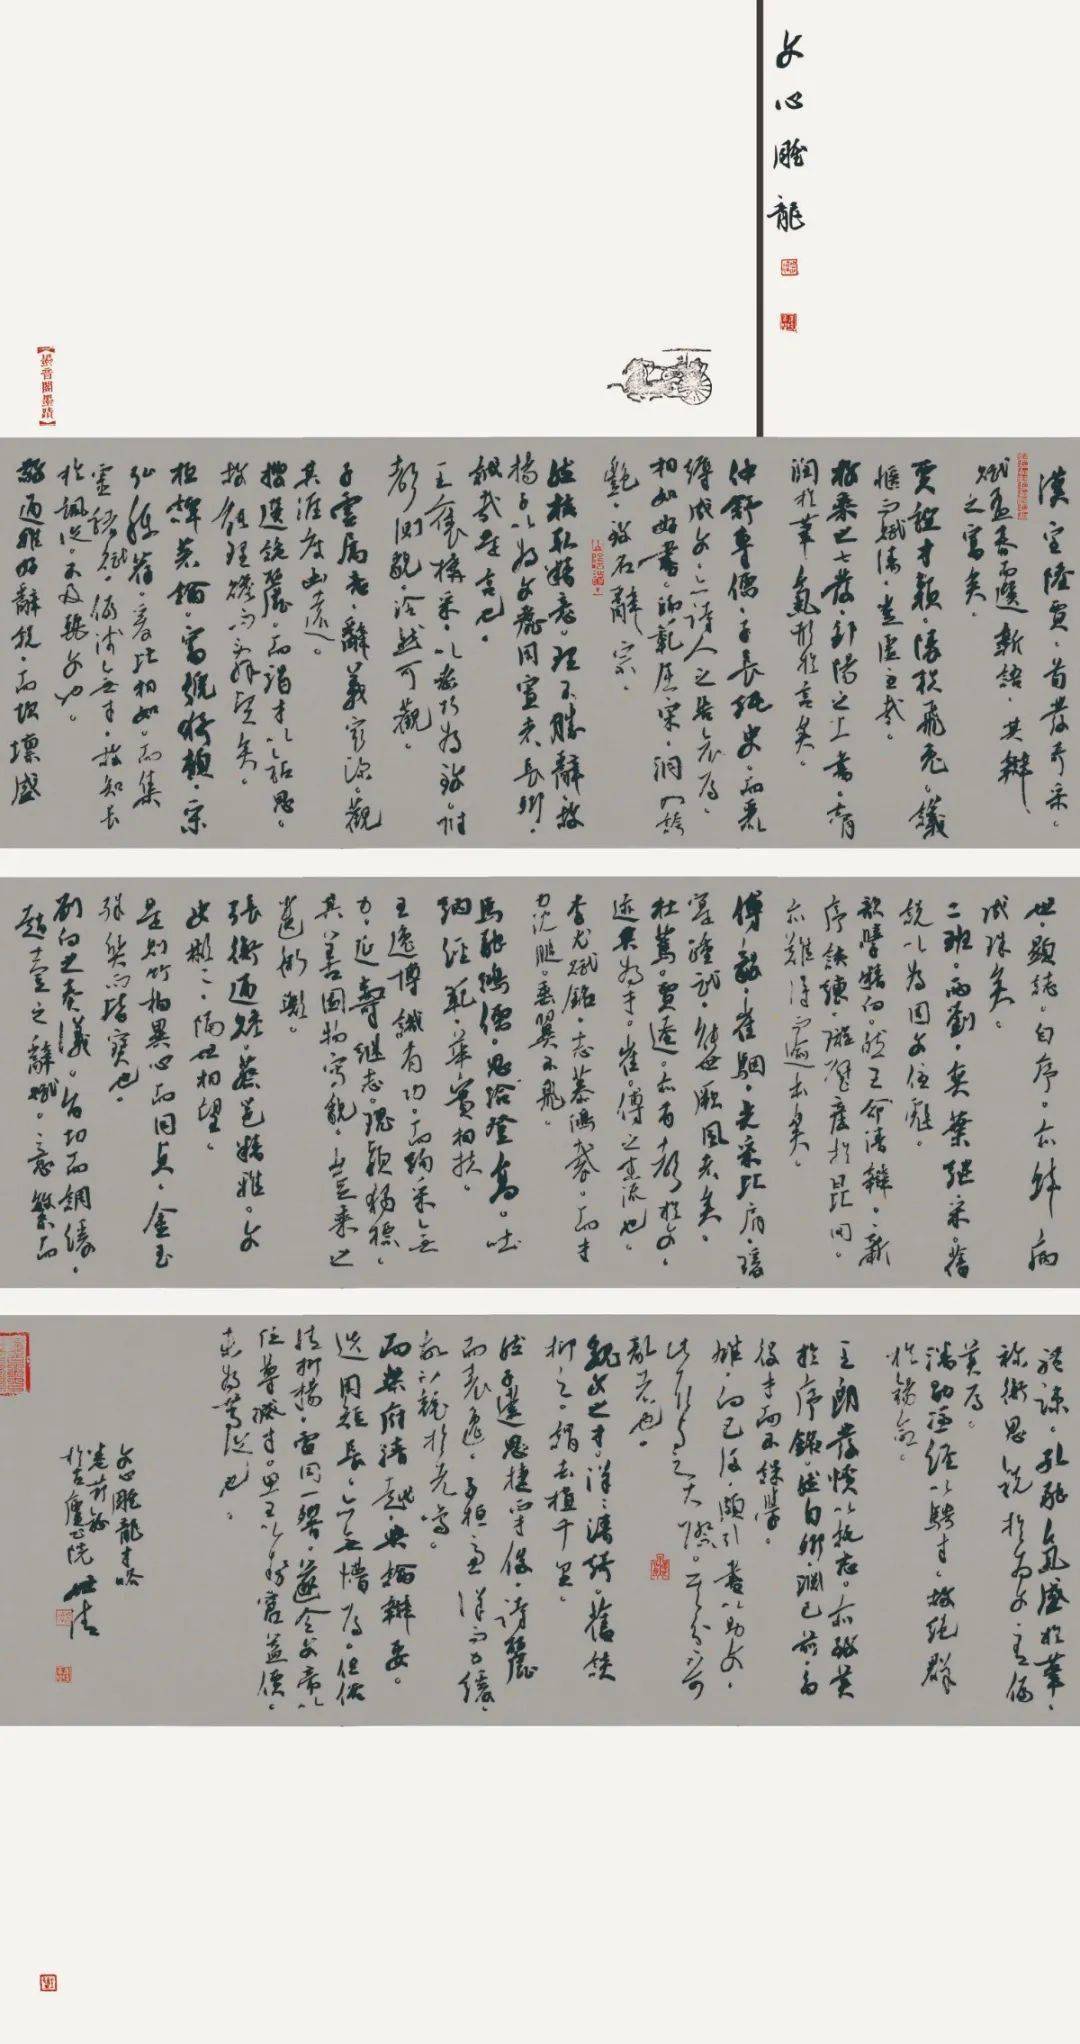 文心雕龍
漢室陸賈。首發奇采。
賦孟春而選新語。其辯
之富矣。
賈誼才穎。陵軼飛兔。議
愜而賦清。豈虛至哉。
枚乘之七發。鄒陽之上書。膏
潤於筆。氣形於言矣。
仲舒專儒。子長純史。而麗
縟成文。亦詩人之告哀焉。
相如好書。師範屈宋。洞入誇
艷。致名辭宗。
然核取精意。理不勝辭。故
揚子以為文麗用寡者長卿。
誠哉是言也。
王褒構采。以密巧為致。附
聲測貌。泠然可觀。
子雲屬意。辭義最深。觀
其涯度幽遠。
搜選詭麗。而竭才以鑽思。
故能理贍而辭堅矣。
桓譚著論。富號猗頓。宋
弘稱薦。爰比相如。而集
靈諸賦。偏淺無才。故知長
於諷諭。不及麗文也。
敬通雅好辭說。而坎壈盛
世。顯志自序。亦蚌病
成珠矣。
二班兩劉。奕葉繼采。舊
說以為固文優彪。
歆學精向。然王命清辯。新
序該練。璇璧產於昆岡。
亦難得而逾本矣。
傅毅崔駰。光采比肩。瑗
寔踵武。能世厥風者矣。
杜篤賈逵。亦有聲於文。
迹其為才。崔傅之末流也。
李尤賦銘。志慕鴻裁。而才
力沈膇。垂翼不飛。
馬融鴻儒。思洽登高。吐
納經範。華實相扶。
王逸博識有功。而絢采無
力。延壽繼志。瑰穎獨標。
其善圖物寫貌。豈枚乘之
遺術歟。
張衡通贍。蔡邕精雅。文
史彬彬。隔世相望。
是則竹柏異心而同貞。金玉
殊質而皆寶也。
劉向之奏議。旨切而調緩。
趙壹之辭賦。意繁而
體疎。孔融氣盛於筆。
祢衡思銳於為文。有偏
美焉。
潘勖憑經以騁才。故絕群
於錫命。
王朗發憤以托志。亦致美
於序銘。然自卿淵已前。多
役才而不課學。
雄向已後。頗引書以助文。
此取與之大際。其分不可
亂者也。
魏文之才。洋洋清綺。舊談
抑之。謂去植千里。
然子建思捷而才俊。詩麗
而表逸。子桓慮詳而力緩。
故不競於先鳴。
而樂府清越。典論辯要。
迭用短長。亦無懵焉。但俗
情抑揚。雷同一響。遂令文帝以
位尊減才。思王以勢窘益價。
未為篤論也。
文心雕龍才略
世清